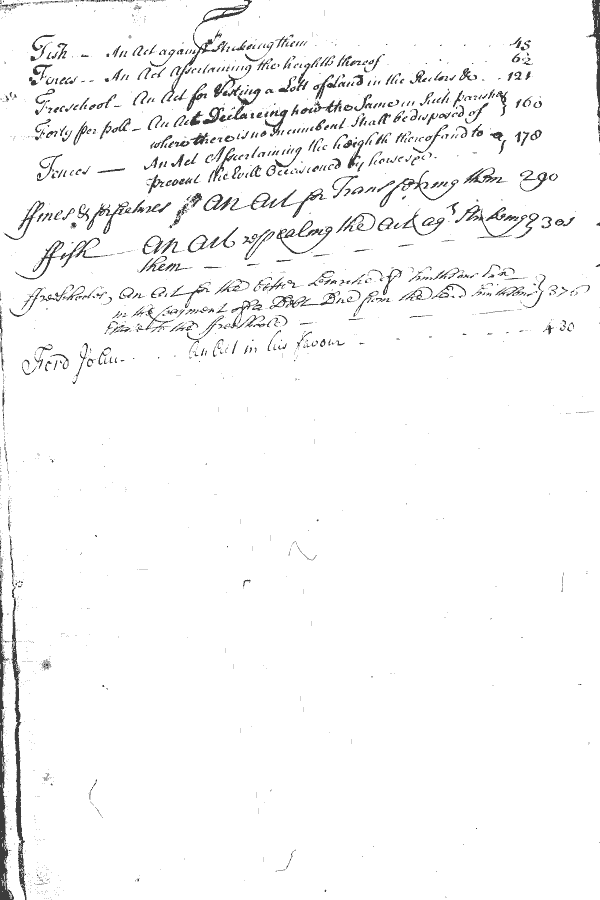 F
Fish — An Act against Strikeing them 45
Fences — An Act Assertaining the heighth thereof 62
Freeschool — An Act for Vesting a Lott of Land in the Rectors &c. 121
Forty per poll — An Act Declareing how the Same in Such parishes
where there is no incumbent Shall be disposed of } 160
Fences — An Act Assertaining the heighth thereof and to
prevent the Evill Occasioned by horses &c. } 178
ffines & forfeitures An Act for Transferring them 290
ffish An Act repealing the Act agt. Strikeing } 301
them
ffreeschooles, An Act for the better
in the payment of a Debt Due from the said } 376
to the freeschools
Ford John An Act in his favour 430